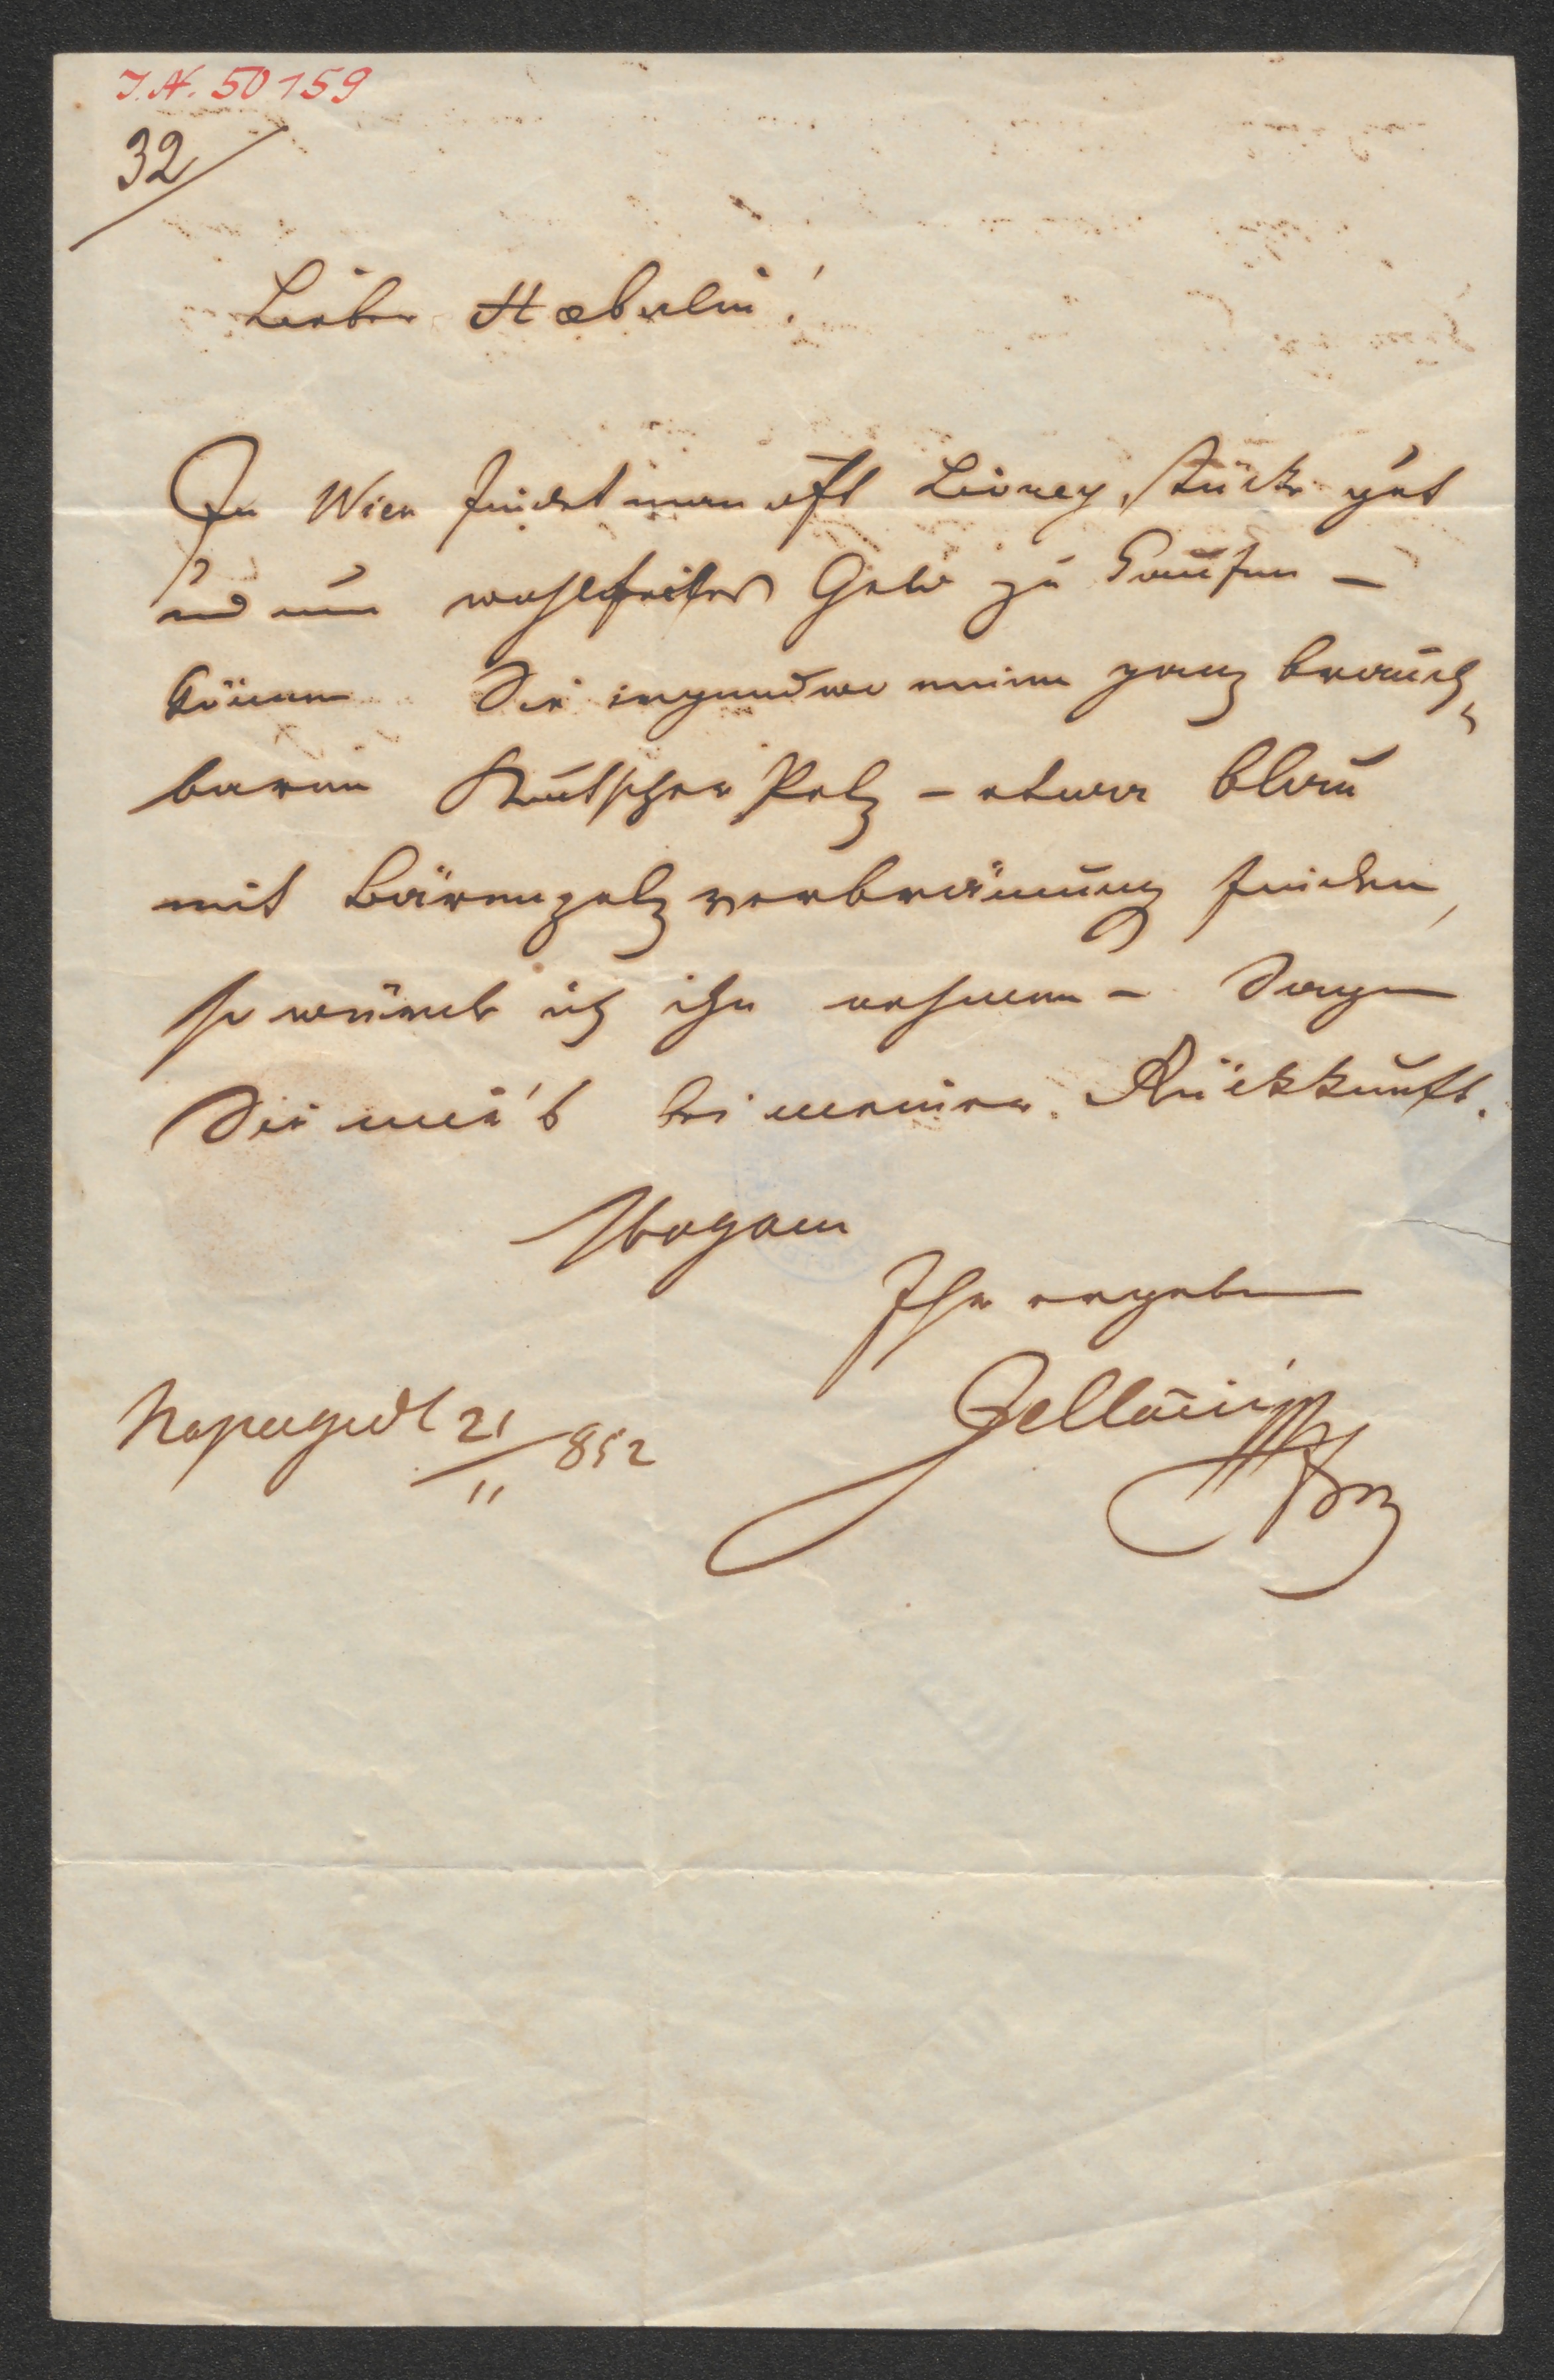 I.N. 50159
32
Lieber Haeberlin!
In Wien findet man oft Livrey Stücke gut
und um wohlfeiles Geld zu kaufen –
können Sie irgendwo einen ganz brauch,
baren Kutscher Pelz – etwa blau
mit Bärenpelzverbrämung finden,
so würde ich ihn nehmen – Sagen
Sie mir's bei meiner Rückkunft.
Ihr ergebener
Napagedl 21/11 852